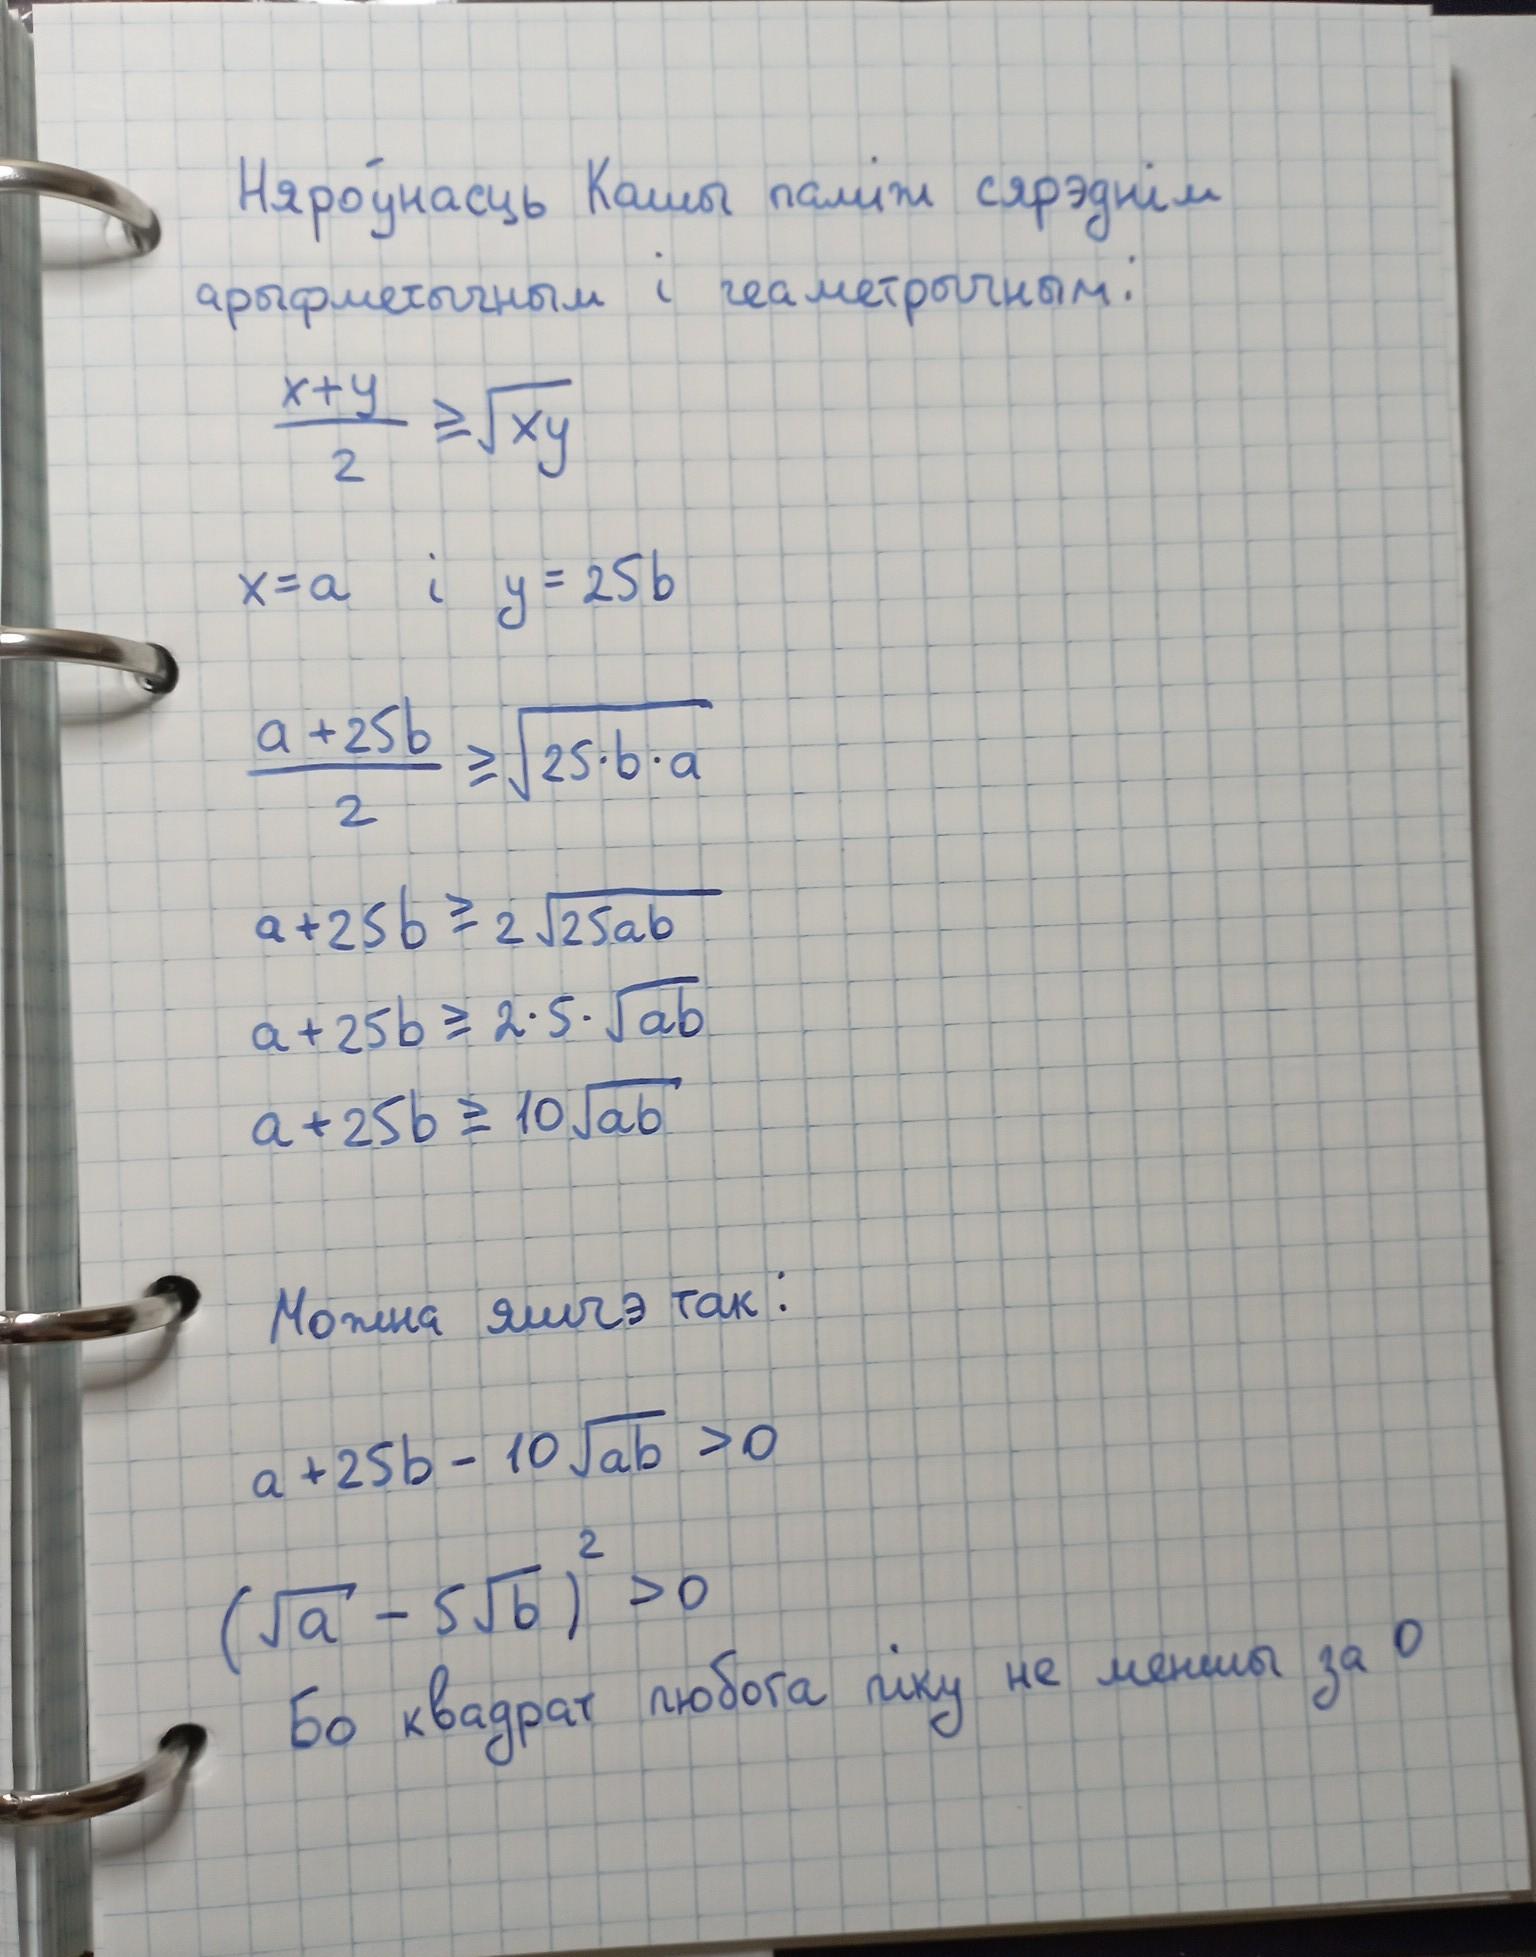 Няроўнасць Кашы паміж сярэднім
арыфметычным і геаметрычным:
x+y/2 ≥ √xy
x=a і y=25b
a+25b/2 ≥ √25·b·a
a+25b ≥ 2√25ab
a+25b ≥ 2·5·√ab
a+25b ≥ 10√ab
Можна яшчэ так:
a+25b - 10√ab >0
(√a - 5√b)² >0
Бо квадрат любога ліку не меншы за 0